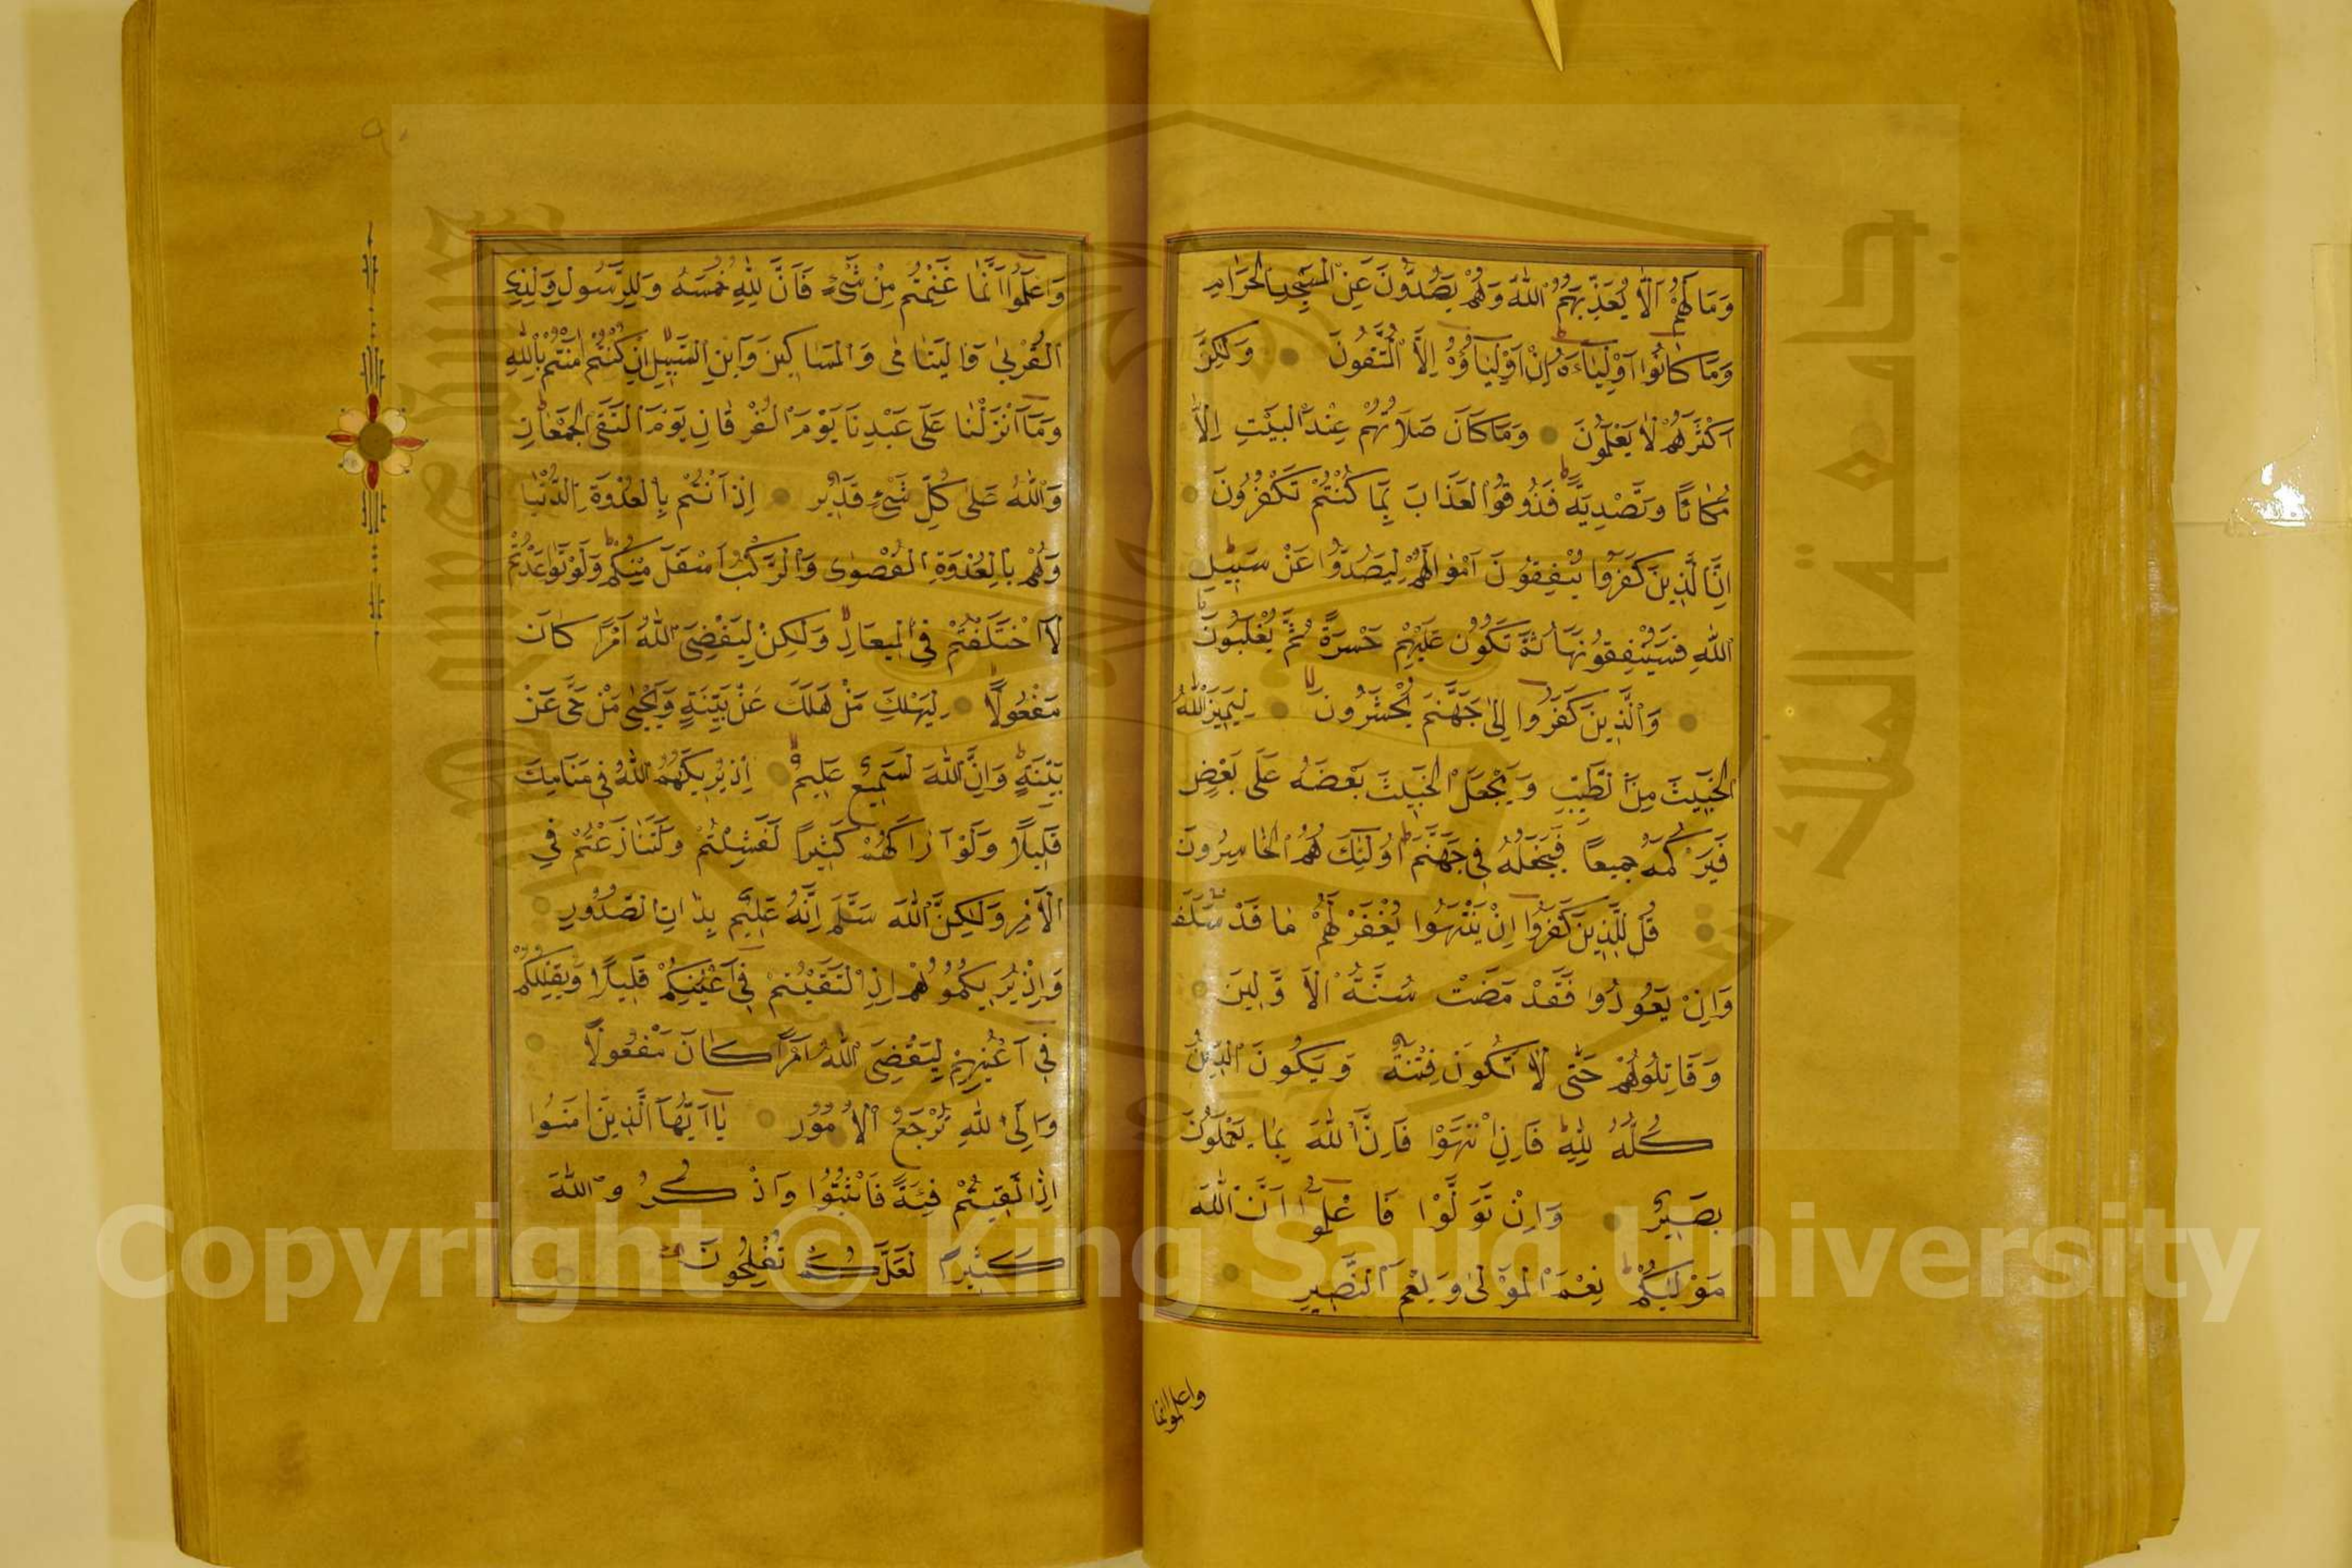 وَمَا لَهُمْ اَلَّا يُعَذِّبَهُمُ اللّٰهُ وَهُمْ يَصُدُّونَ عَنِ الْمَسْجِدِ الْحَرَامِ
وَمَا كَانُوٓا اَوْلِيَآءَهُ اِنْ اَوْلِيَآؤُهُٓ اِلَّا الْمُتَّقُونَ وَلٰكِنَّ
اَكْثَرَهُمْ لَا يَعْلَمُونَ وَمَا كَانَ صَلَاتُهُمْ عِنْدَ الْبَيْتِ اِلَّا
مُكَآءً وَتَصْدِيَةً فَذُوقُوا الْعَذَابَ بِمَا كُنْتُمْ تَكْفُرُونَ
اِنَّ الَّذِينَ كَفَرُوا يُنْفِقُونَ اَمْوَالَهُمْ لِيَصُدُّوا عَنْ سَبِيلِ
اللّٰهِ فَسَيُنْفِقُونَهَا ثُمَّ تَكُونُ عَلَيْهِمْ حَسْرَةً ثُمَّ يُغْلَبُونَ
وَالَّذِينَ كَفَرُوٓا اِلٰى جَهَنَّمَ يُحْشَرُونَ لِيَمِيزَ اللّٰهُ
الْخَبِيثَ مِنَ الطَّيِّبِ وَيَجْعَلَ الْخَبِيثَ بَعْضَهُ عَلٰى بَعْضٍ
فَيَرْكُمَهُ جَمِيعًا فَيَجْعَلَهُ فِي جَهَنَّمَ اُولٰٓئِكَ هُمُ الْخَاسِرُونَ
قُلْ لِلَّذِينَ كَفَرُوٓا اِنْ يَنْتَهُوا يُغْفَرْ لَهُمْ مَا قَدْ سَلَفَ
وَاِنْ يَعُودُوا فَقَدْ مَضَتْ سُنَّةُ الْاَوَّلِينَ
وَقَاتِلُوهُمْ حَتّٰى لَا تَكُونَ فِتْنَةٌ وَيَكُونَ الدِّينُ
كُلُّهُ لِلّٰهِ فَاِنِ انْتَهَوْا فَاِنَّ اللّٰهَ بِمَا يَعْمَلُونَ
بَصِيرٌ وَاِنْ تَوَلَّوْا فَاعْلَمُوٓا اَنَّ اللّٰهَ
مَوْلٰيكُمْ نِعْمَ الْمَوْلٰى وَنِعْمَ النَّصِيرُ
واعلموا انما
وَاعْلَمُوٓا اَنَّمَا غَنِمْتُمْ مِنْ شَيْءٍ فَاَنَّ لِلّٰهِ خُمُسَهُ وَلِلرَّسُولِ وَلِذِي
الْقُرْبٰى وَالْيَتَامٰى وَالْمَسَاكِينَ وَابْنِ السَّبِيلِ اِنْ كُنْتُمْ اٰمَنْتُمْ بِاللّٰهِ
وَمَآ اَنْزَلْنَا عَلٰى عَبْدِنَا يَوْمَ الْفُرْقَانِ يَوْمَ الْتَقَى الْجَمْعَانِ
وَاللّٰهُ عَلٰى كُلِّ شَيْءٍ قَدِيرٌ اِذْ اَنْتُمْ بِالْعُدْوَةِ الدُّنْيَا
وَهُمْ بِالْعُدْوَةِ الْقُصْوٰى وَالرَّكْبُ اَسْفَلَ مِنْكُمْ وَلَوْ تَوَاعَدْتُمْ
لَاخْتَلَفْتُمْ فِي الْمِيعَادِ وَلٰكِنْ لِيَقْضِيَ اللّٰهُ اَمْرًا كَانَ
مَفْعُولًا لِيَهْلِكَ مَنْ هَلَكَ عَنْ بَيِّنَةٍ وَيَحْيٰى مَنْ حَيَّ عَنْ
بَيِّنَةٍ وَاِنَّ اللّٰهَ لَسَمِيعٌ عَلِيمٌ اِذْ يُرِيكَهُمُ اللّٰهُ فِي مَنَامِكَ
قَلِيلًا وَلَوْ اَرَاكَهُمْ كَثِيرًا لَفَشِلْتُمْ وَلَتَنَازَعْتُمْ فِي
الْاَمْرِ وَلٰكِنَّ اللّٰهَ سَلَّمَ اِنَّهُ عَلِيمٌ بِذَاتِ الصُّدُورِ
وَاِذْ يُرِيكُمُوهُمْ اِذِ الْتَقَيْتُمْ فِيٓ اَعْيُنِكُمْ قَلِيلًا وَيُقَلِّلُكُمْ
فِيٓ اَعْيُنِهِمْ لِيَقْضِيَ اللّٰهُ اَمْرًا كَانَ مَفْعُولًا
وَاِلَى اللّٰهِ تُرْجَعُ الْاُمُورُ يَآ اَيُّهَا الَّذِينَ اٰمَنُوٓا
اِذَا لَقِيتُمْ فِئَةً فَاثْبُتُوا وَاذْكُرُوا اللّٰهَ
كَثِيرًا لَعَلَّكُمْ تُفْلِحُونَ
Copyright © King Saud University
جامعة الملك سعود